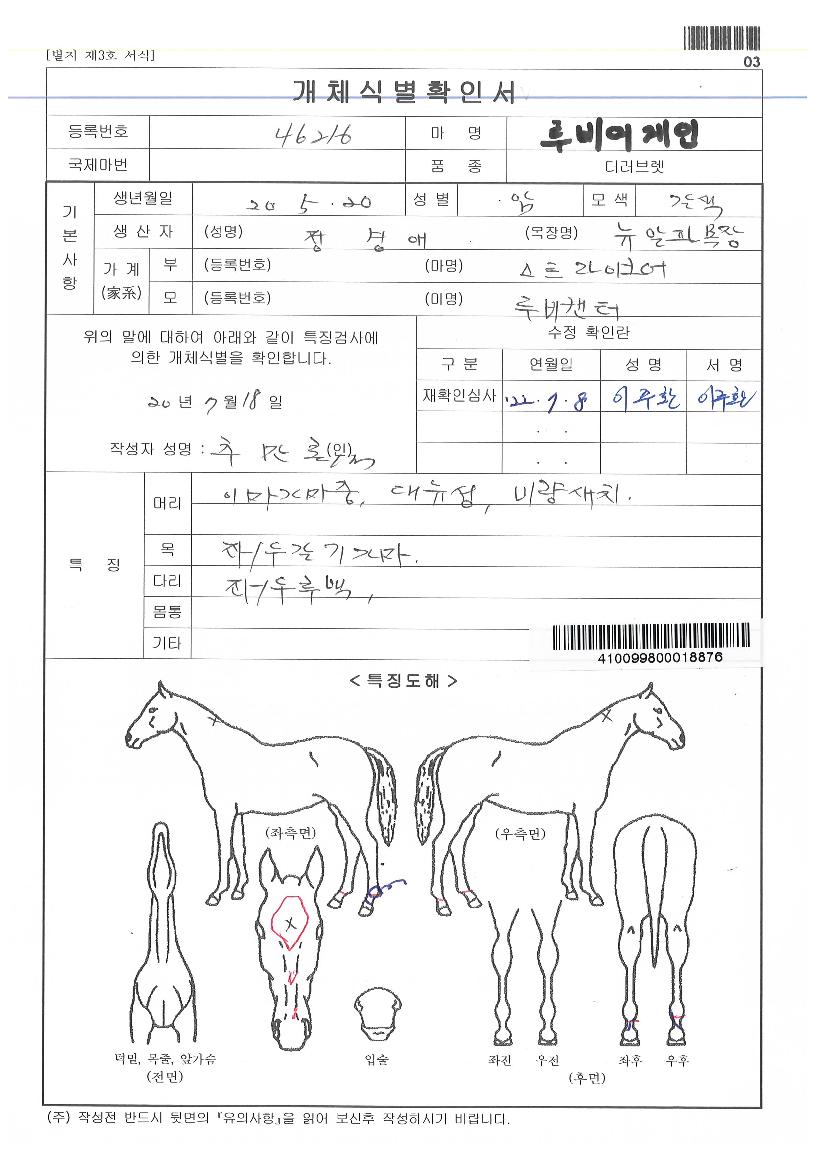 [별지 제3호 서식]
03
개체식별확인서
등록번호 46216 마 명 루비어게인
국제마번 품 종 더러브렛
기본사항
생년월일 20 5 . 20 성 별 암 모 색 갈색
생 산 자 (성명) 정 경 애 (목장명) 뉴알파목장
가 계 (家系) 부 (등록번호) (마명) 스트라이크어
모 (등록번호) (마명) 루비캔터
위의 말에 대하여 아래와 같이 특징검사에
의한 개체식별을 확인합니다.
20 년 7 월 18 일
작성자 성명 : 추 만 호 (인)
수정 확인란
구 분 연월일 성 명 서 명
재확인심사 '22. 7. 8 이주환 이주환
. .
. .
특 징
머리 이마가마중, 대유성, 비량새치.
목 좌/우갈기가마.
다리 좌/우후백,
몸통
기타
410099800018876
< 특징도해 >
(좌측면) (우측면)
턱밑, 목줄, 앞가슴 입술 좌전 우전 좌후 우후
(전면) (후면)
(주) 작성전 반드시 뒷면의 『유의사항』을 읽어 보신후 작성하시기 바랍니다.